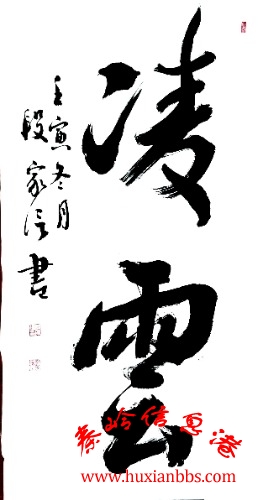 凌雲
壬寅冬月
段家信書
秦岭信息港
www.huxianbbs.com